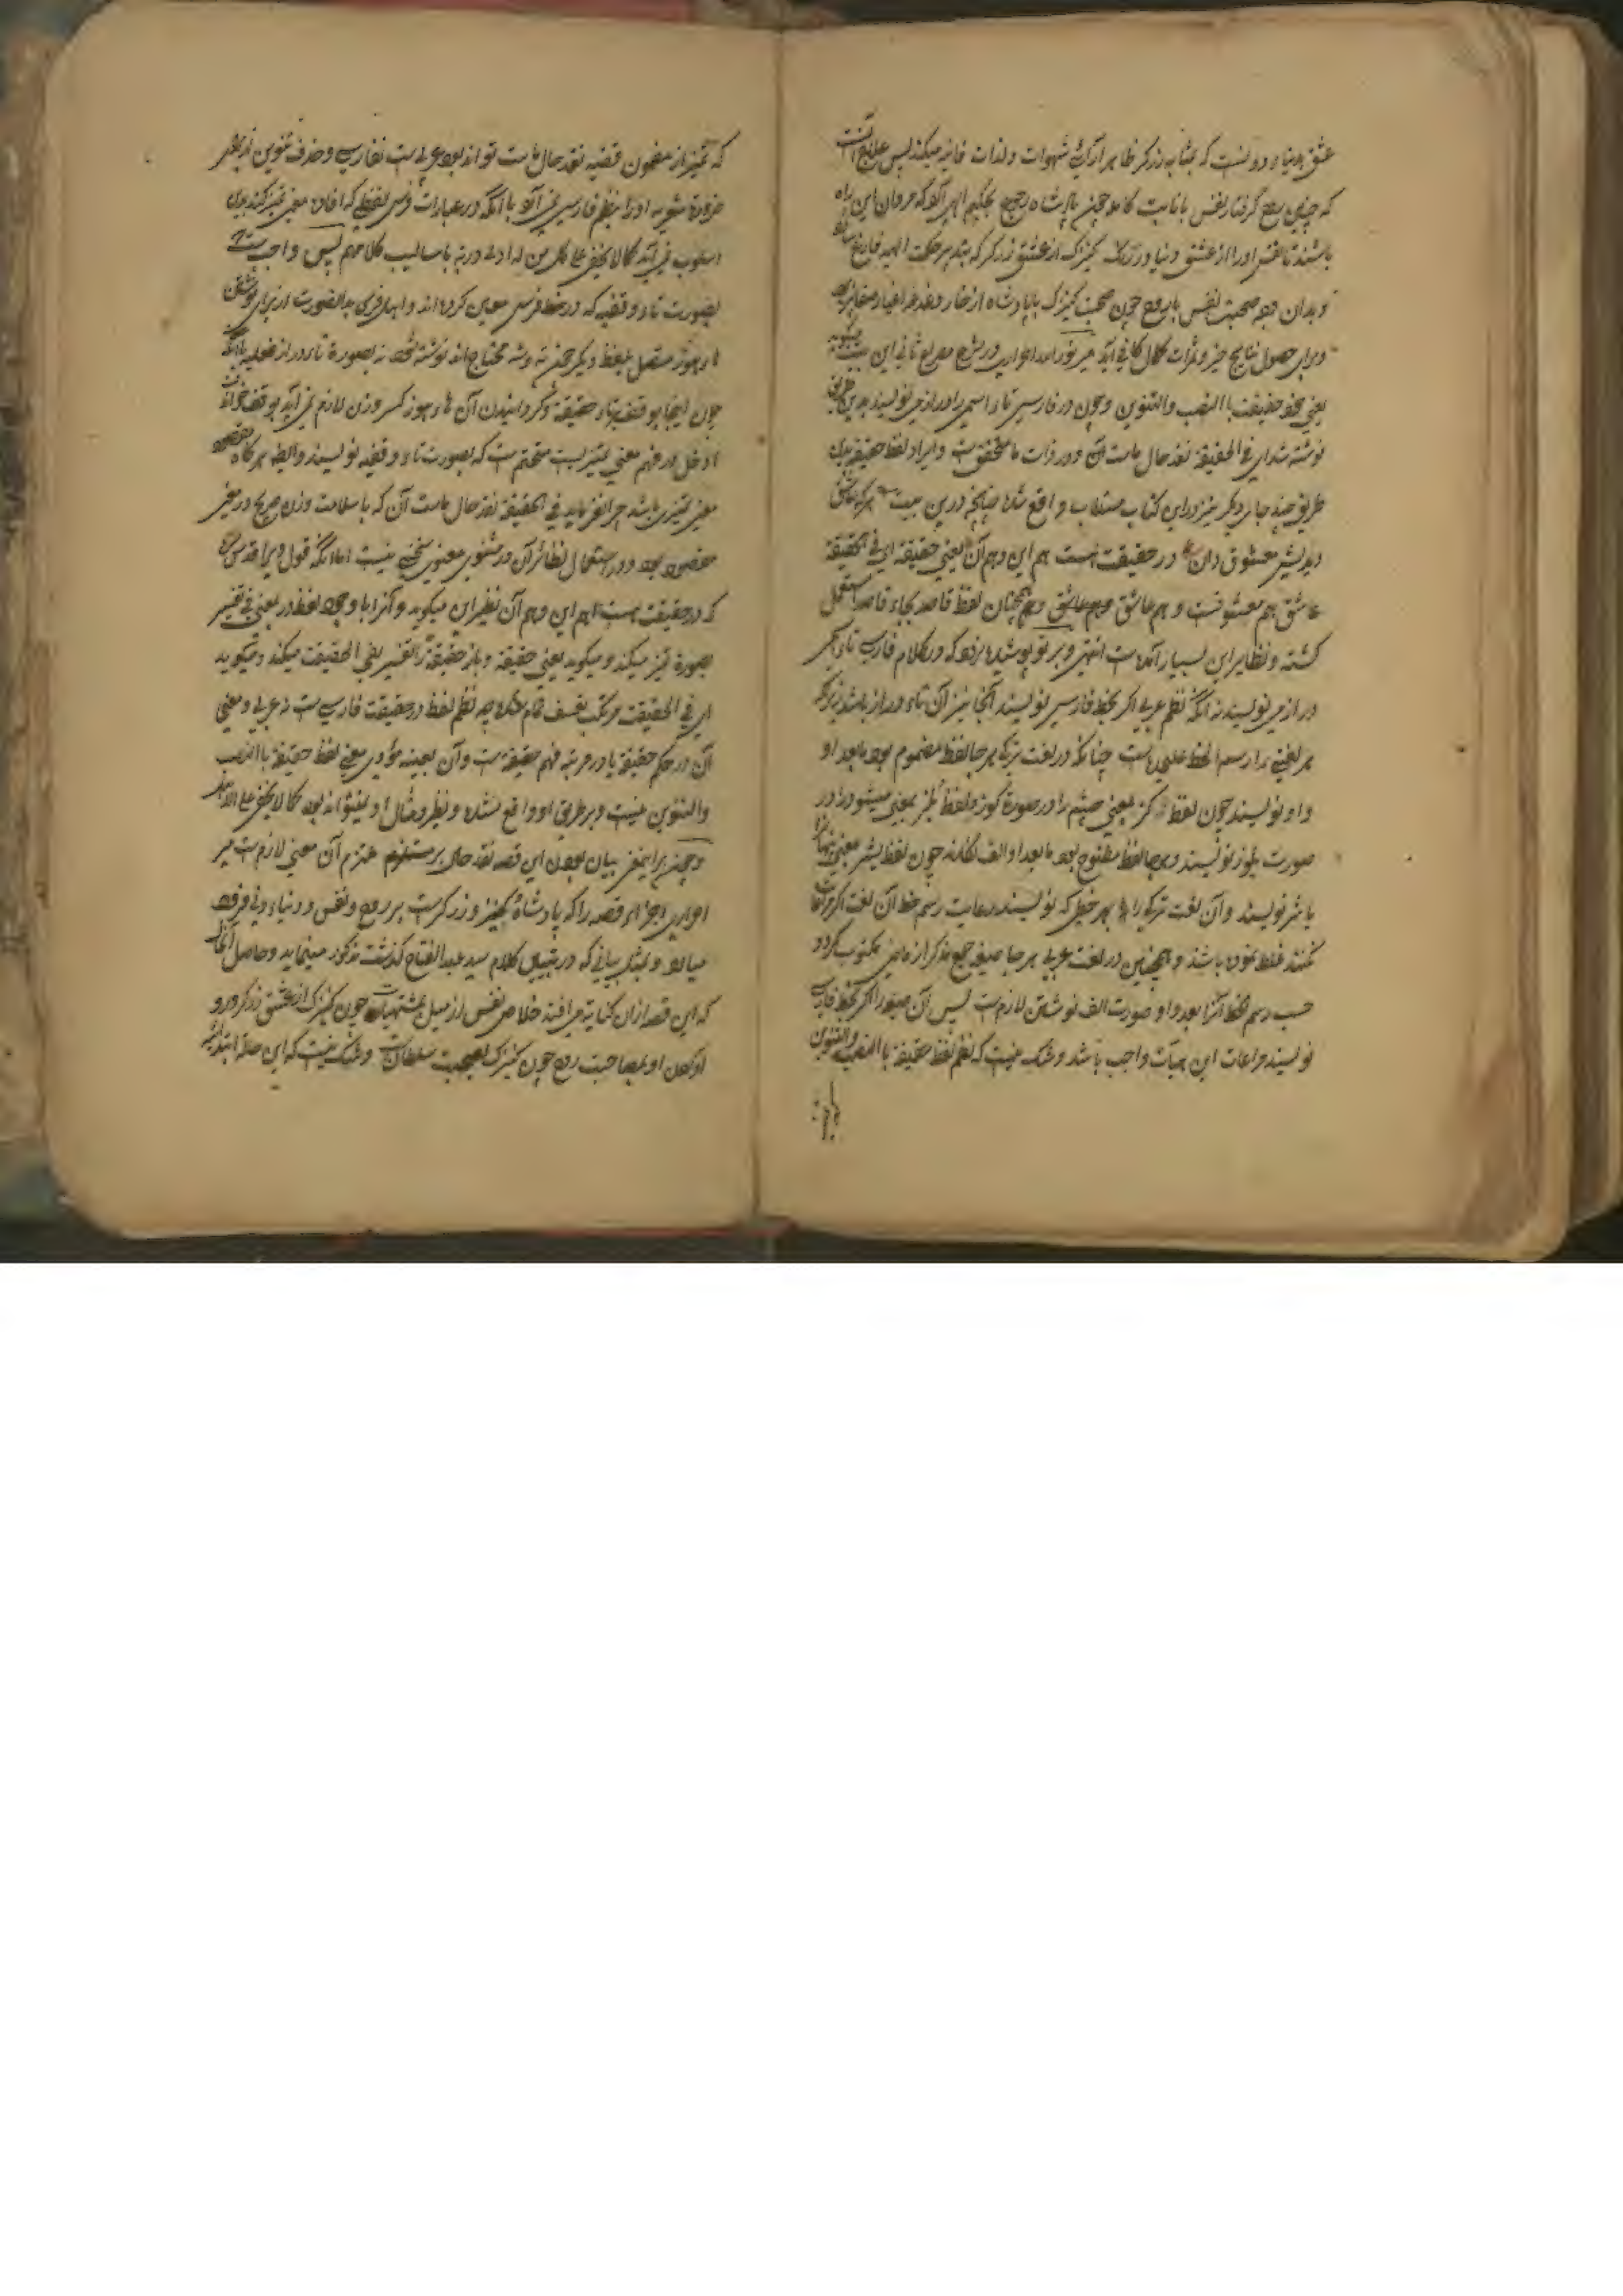 عشق بدنیاء دونست که بمثابه زرکر ظاهر آرای شهوات ولذات فانیه میکند پس علاج آنست
که چنین روح کرفتار نفس بانابت کامله چون پادشاه رجوع بحکیم الهی آرد که مردان این راه
باشند تا نفس او را از عشق دنیا در رنک کنیزک از عشق زرکر که بتدبیر حکمت الهیه فارغ
وبدان وجه صحبت نفس با روح چون صحبت کنیزک با پادشاه از خار وغدغه اغیار
وبرای حصول نتایج خیر وثمرات کمال کافی آید میر نور الله احراری در شرح مصراع ثانی این بیت میکوید
یعنی محو حقیقت با النصب والتنوین وچون در فارسی تا راسمی را دراز می نویسند بدین طریق
نوشته شد ای فی الحقیقة نقد حال ماست آن ودر ذات ما متحقق است وایراد لفظ حقیقة بدین
طریق چند جای دیکر نیز در این کتاب مستطاب واقع شده چنانچه درین بیت هر که عاشق
دیدیش معشوق دان در حقیقت هست هم این وهم آن یعنی حقیقة ای فی الحقیقة
عاشق هم معشوقست وهم عاشق وهمچنان لفظ قاصد بجاء قاصدا مستعمل
کشته ونظایر این بسیار آمده است انتهی وبر تو پوشیده نبود که در کلام فارسی تا دیکر
دراز می نویسند نه آنکه نظم عربی اکر بخط فارسی نویسند آنجا نیز آن تاء دراز باشد زیرا که
هر لغتی را رسم الخط علیحده است چنانکه در لغت ترکی هر جا لفظ مضموم بود مابعد او
واو نویسند چون لفظ کز بمعنی چشم را در صورة کوز ولفظ یلز بمعنی میشود را در
صورت یلوز نویسند وهر جا لفظ مفتوح بود مابعد او الف نکارند چون لفظ یشر بمعنی
یاشر نویسند وآن لغت ترکی را بهر خطی که نویسند رعایت رسم خط آن لغت اکر مراعات
نکنند غلط نموده باشند وهمچنین در لغت عربی هر جا صیغه جمع مذکر از ماضی مکتوب کردد
حسب رسم خط آنرا بعد واو صورت الف نوشتن لازم است پس آن صیغه را اکر بخط فارسی
نویسند مراعات این هیأت واجب باشد وشک نیست که نظم لفظ حقیقة با النصب والتنوین
که تمیز از مضمون قضیه نقد حال ماست تواند بود عربی است نه فارسی وحذف تنوین از بهر
ضرورة شعریه او را بنظم فارسی نمی آرد با آنکه در عبارات فرس لفظی که افاده معنی تمیز کند بدین
اسلوب نمی آید کما لا یخفی علی کل من له ادنی دربة باسالیب کلامهم پس واجب است
بصورت تاء وقفیه که در خط فرس معین کرده اند وایهام فرق بدالصورت از برای نوشتن
هاء هوز متصل بلفظ دیکر چون ته وشه محتاج اند نوشته شود نه بصورة تاء دراز فعلیه با آنکه
چون اینجا بوقف تاء حقیقة وکردانیدن آن هاء هوز کسر وزن لازم نمی آید بوقف خواندن
ادخل در فهم معنی تمیزیت محتم است که بصورت تاء وقفیه نویسند والبته هر کاه مقصود
معنی تمیزی باشد چرا نفرماید فی الحقیقة نقد حال ماست آن که با سلامت وزن صریح در معنی
مقصود بود ودر استعمال نظائر آن در مثنوی معنوی سخنی نیست اما آنکه قول ویرا قدس سره
که در حقیقت هست هم این وهم آن نظیر این میکوید وآنرا با وجود لفظ در بمعنی فی تفسیر
بصورة تمیز میکند ومیکوید یعنی حقیقة وباز حقیقة را تفسیر بفی الحقیقت میکند ومیکوید
ای فی الحقیقت مرتکب تعسف تمام شده چه نظم لفظ در حقیقت فارسی است نه عربی ومعنی
آن در حکم حقیقة یا در مرتبه فهم حقیقة است وآن بعینه مؤدی معنی لفظ حقیقة با النصب
والتنوین نیست وبر طریق او واقع نشده ونظیر ومثال او نمیتواند بود کما لا یخفی علی الماهر
وچند برای معنی بیان بودن این قصه نقد حال بر مستلزم ملتزم آن معنی لازم است میر
احراری اجزاء قصه را که پادشاه وکنیز وزرکر است بر روح ونفس ودنیاء دنی فرود
میارد وبمثل بیانی که در تنبیق کلام سید عبد الفتاح کذشت مذکور مینماید وحاصل آنکه
که این قصه از آن کنایة می افتد خلاص نفس از میل بمشتهیات چون کنیزک از عشق زرکر ورو
آوردن او بمصاحبت روح چون کنیزک بصحبت سلطان است وشک نیست که این صله ابتداء